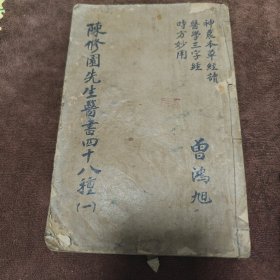 神農本草經讀
醫學三字經
時方妙用
曹鴻旭
陳修園先生醫書四十八種(一)